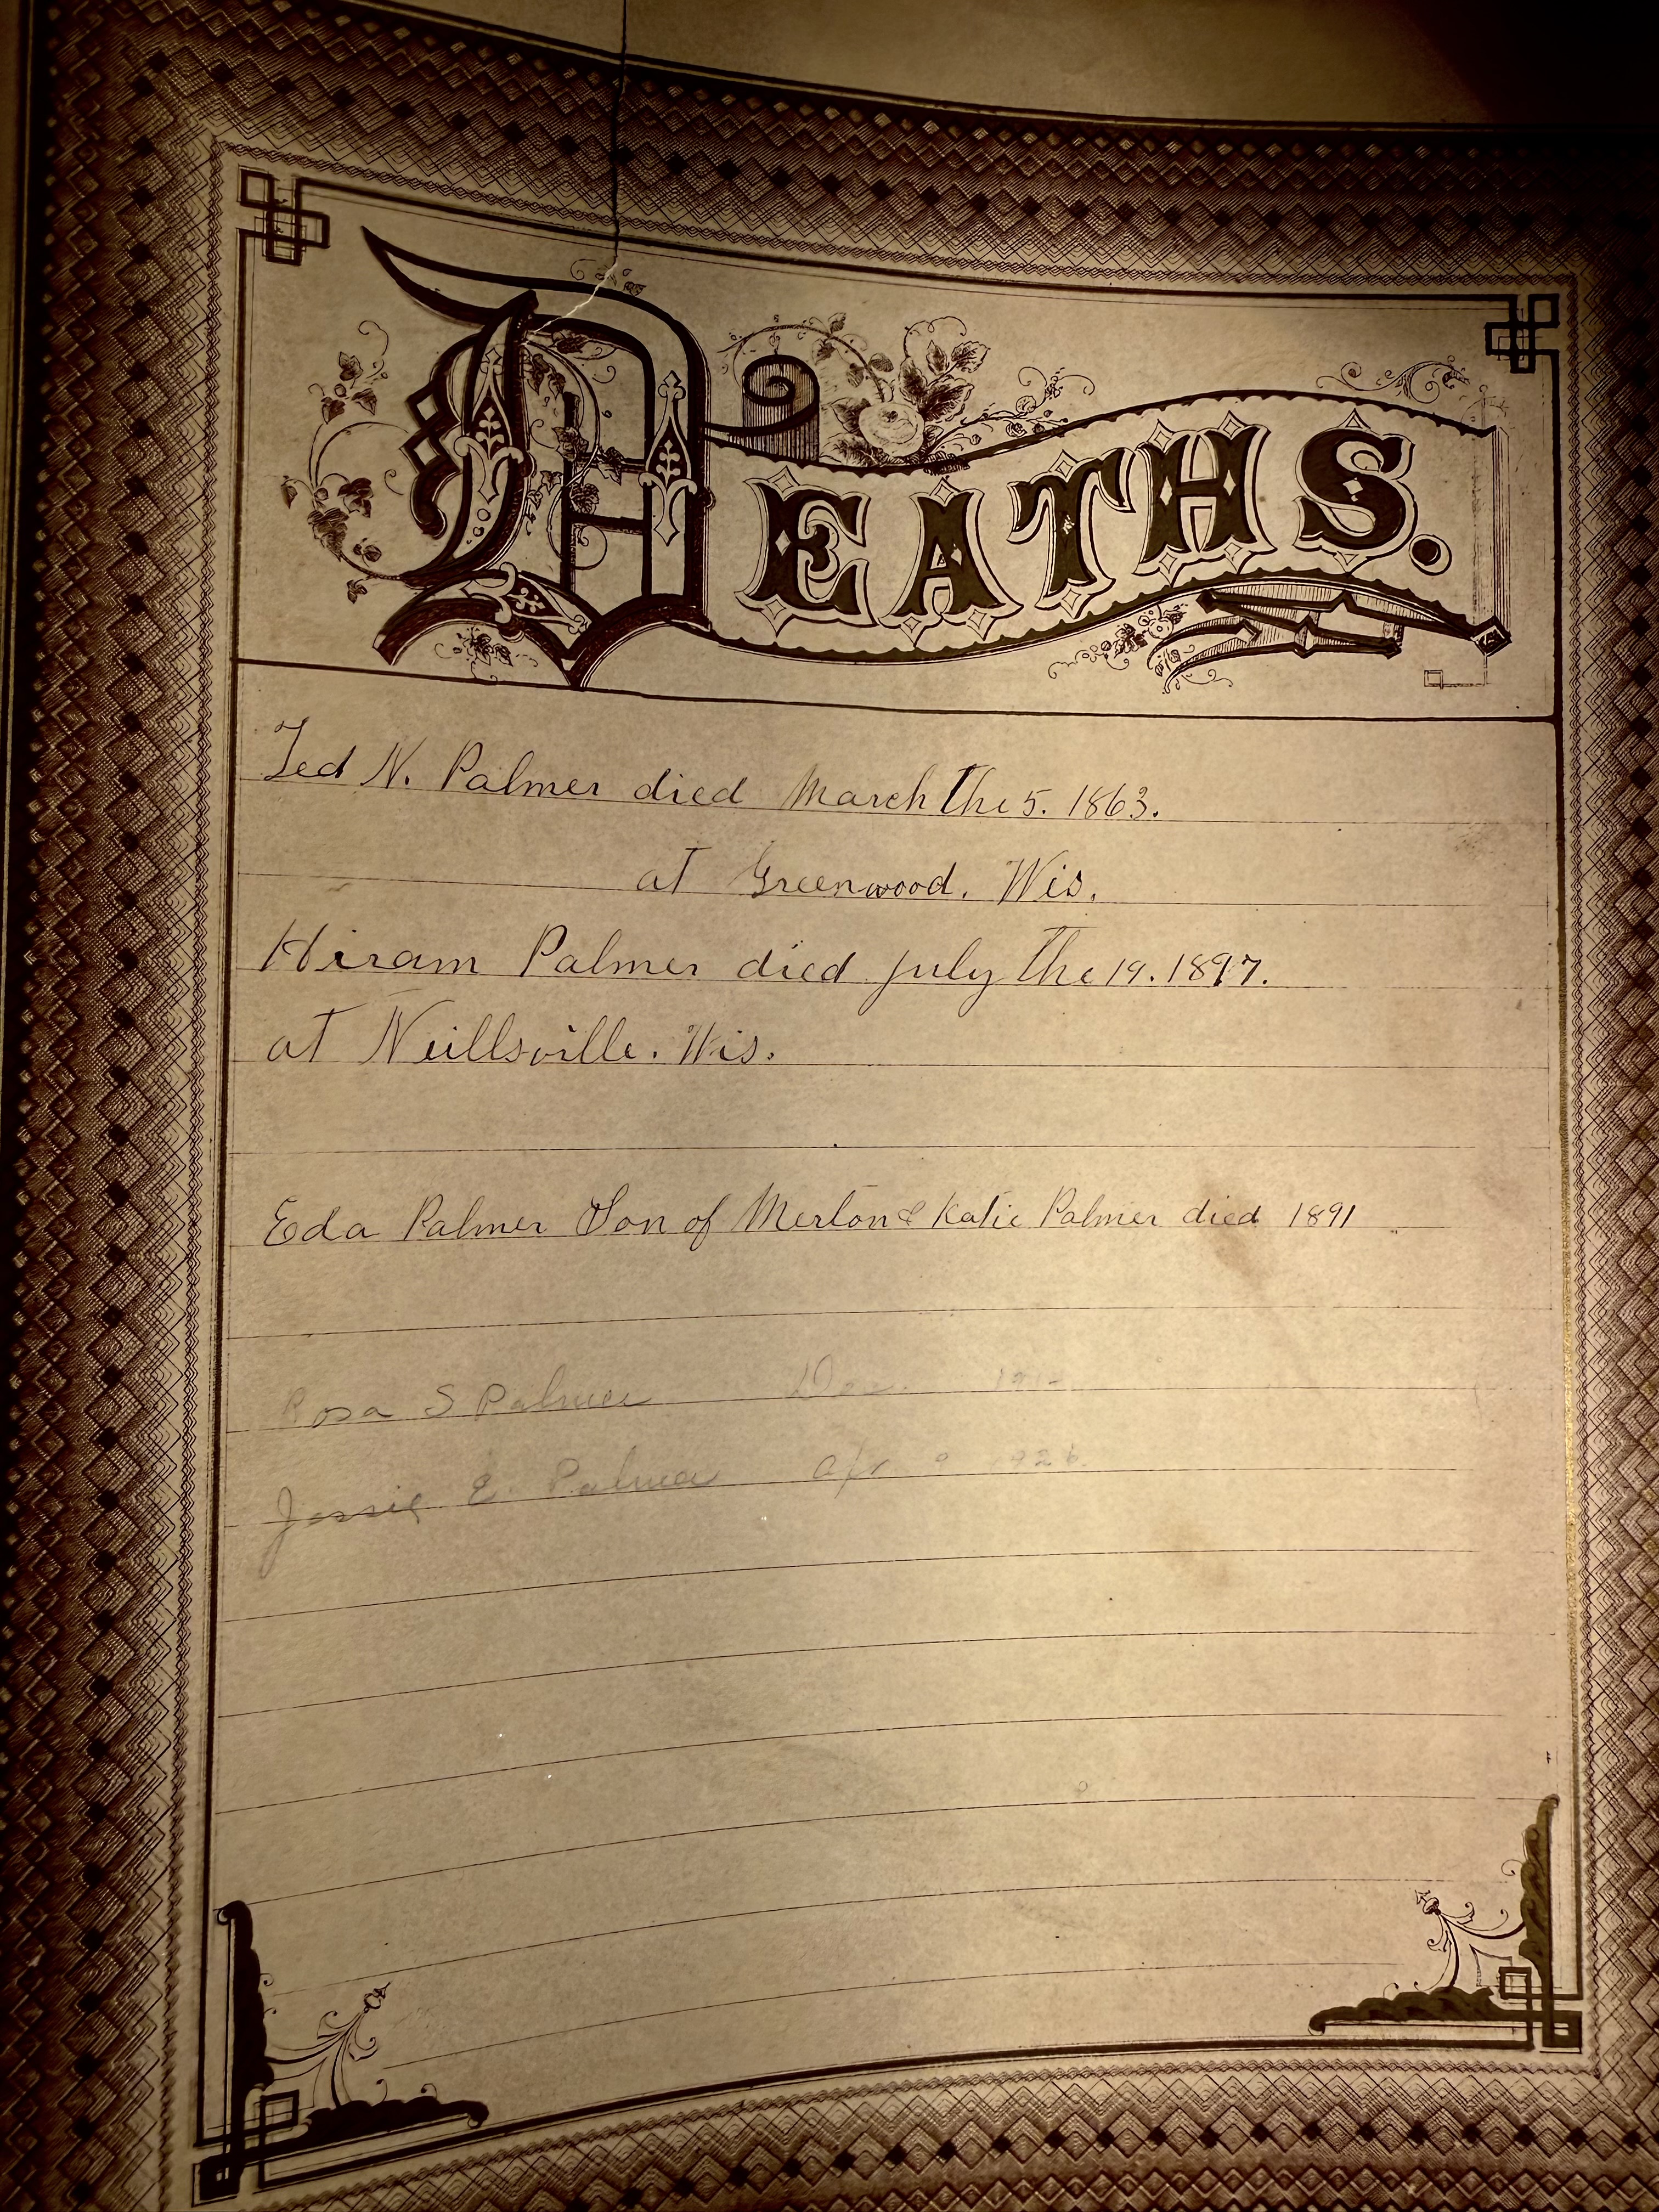 DEATHS.
Ted N. Palmer died March the 5. 1863.
at Greenwood. Wis.
Hiram Palmer died july the 19. 1897.
at Neillsville. Wis.
Eda Palmer Son of Merton & Katie Palmer died 1891
Rosa S Palmer Dec.
Jessie E. Palmer Apr 9 1926